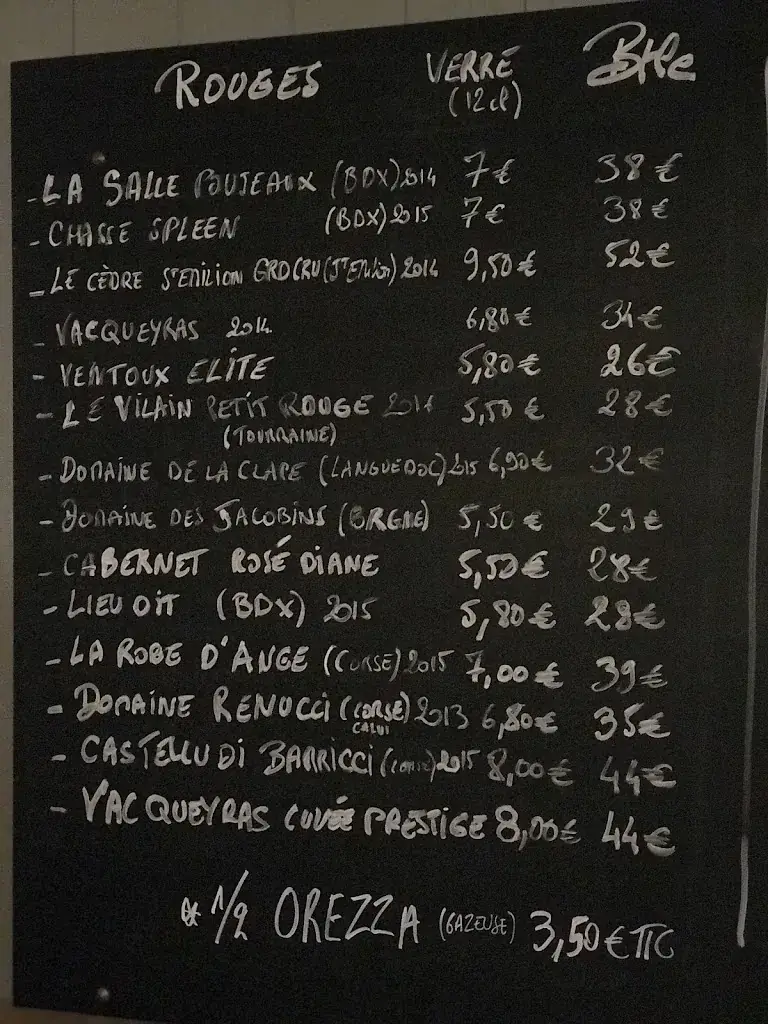 ROUGES VERRE BTLE
(12cl)
- LA SALLE POUJEAUX (BDX) 2014 7€ 38€
- CHASSE SPLEEN (BDX) 2015 7€ 38€
- LE CÈDRE ST EMILION GRD CRU (ST Emilion) 2014 9,50€ 52€
- VACQUEYRAS 2014 6,80€ 34€
- VENTOUX ELITE 5,80€ 26€
- LE VILAIN PETIT ROUGE 2014 5,50€ 28€
(TOURRAINE)
- DOMAINE DE LA CLAPE (LANGUEDOC) 2015 6,90€ 32€
- DOMAINE DES JACOBINS (BRGNE) 5,50€ 29€
- CABERNET ROSÉ DIANE 5,50€ 28€
- LIEU DIT (BDX) 2015 5,80€ 28€
- LA ROBE D'ANGE (CORSE) 2015 7,00€ 39€
- DOMAINE RENUCCI (CORSE) 2013 6,80€ 35€
CALVI
- CASTELLU DI BARRICCI (CORSE) 2015 8,00€ 44€
- VACQUEYRAS CUVÉE PRESTIGE 8,00€ 44€
* 1/2 OREZZA (GAZEUSE) 3,50€ TTC